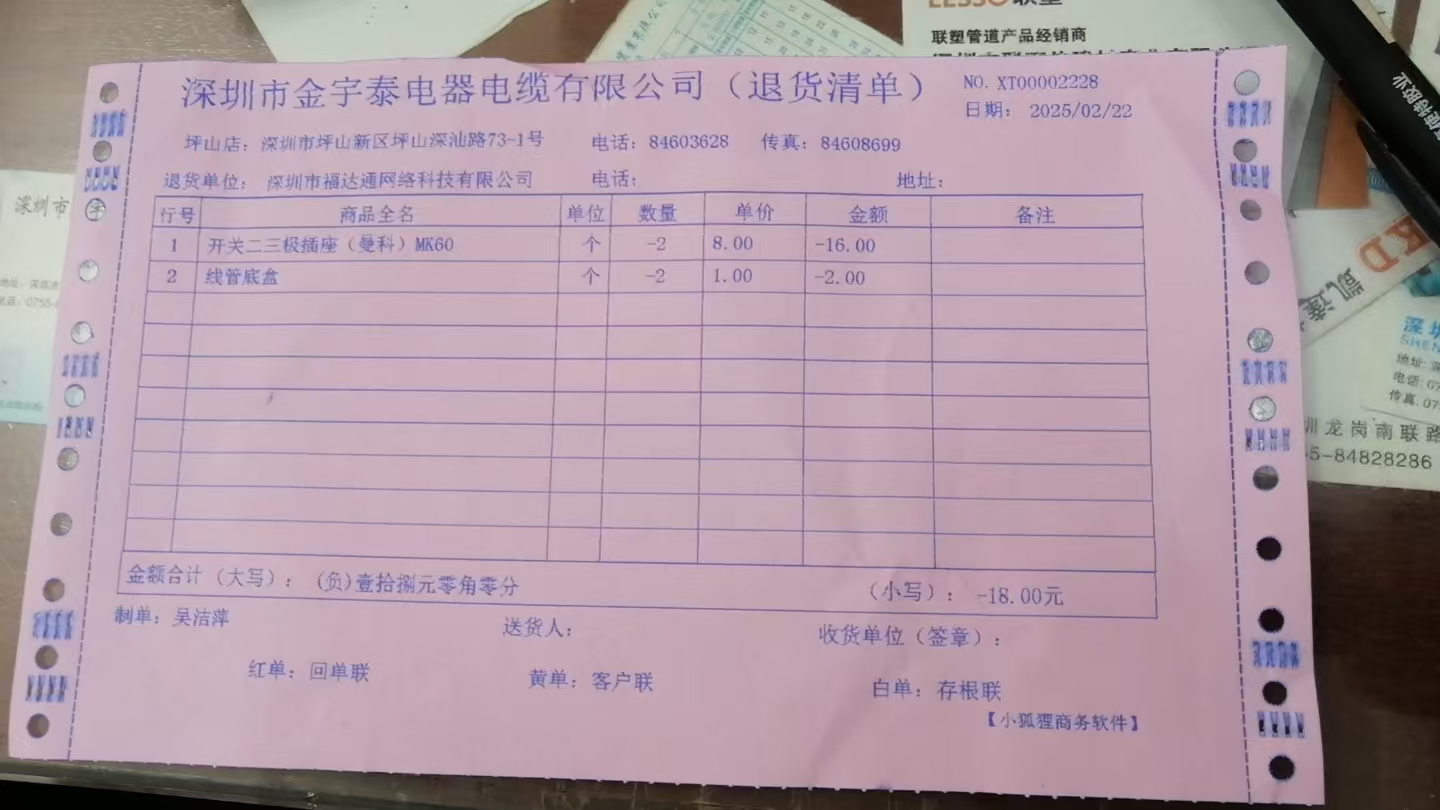 LESSO联塑
联塑管道产品经销商
深圳市金宇泰电器电缆有限公司（退货清单）
NO. XT00002228
日期： 2025/02/22
坪山店：深圳市坪山新区坪山深汕路73-1号 电话：84603628 传真：84608699
退货单位： 深圳市福达通网络科技有限公司 电话： 地址：
行号 商品全名 单位 数量 单价 金额 备注
1 开关二三极插座（曼科）MK60 个 -2 8.00 -16.00
2 线管底盒 个 -2 1.00 -2.00
金额合计（大写）： (负)壹拾捌元零角零分 （小写）： -18.00元
制单：吴洁萍 送货人： 收货单位（签章）：
红单：回单联 黄单：客户联 白单：存根联
【小狐狸商务软件】
深圳市
电话：0755-
凯达
KD
深圳
SHEN
地址：深
电话：07
传真.07
圳龙岗南联路
55-84828286